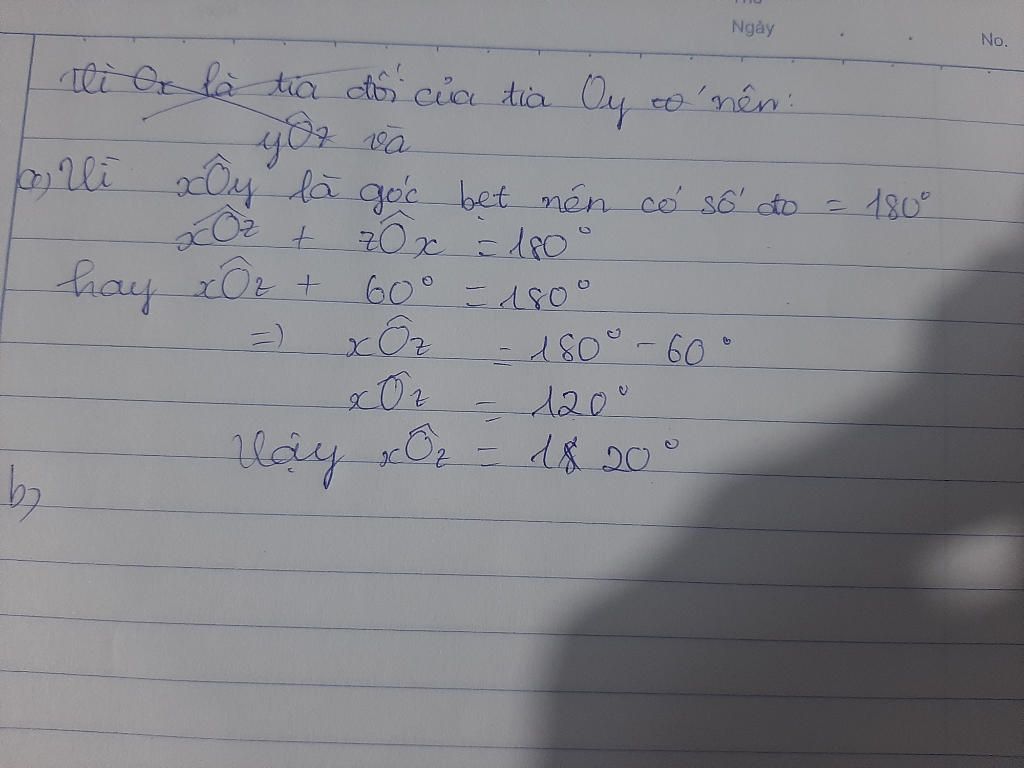 Ngày
No.
Vì Ox là tia đối của tia Oy có nên:
yÔz và
a) Vì xÔy là góc bẹt nên có số đo = 180°
xÔz + zÔx = 180°
hay xÔz + 60° = 180°
=) xÔz = 180° - 60°
xÔz = 120°
Vậy xÔz = 120°
b)